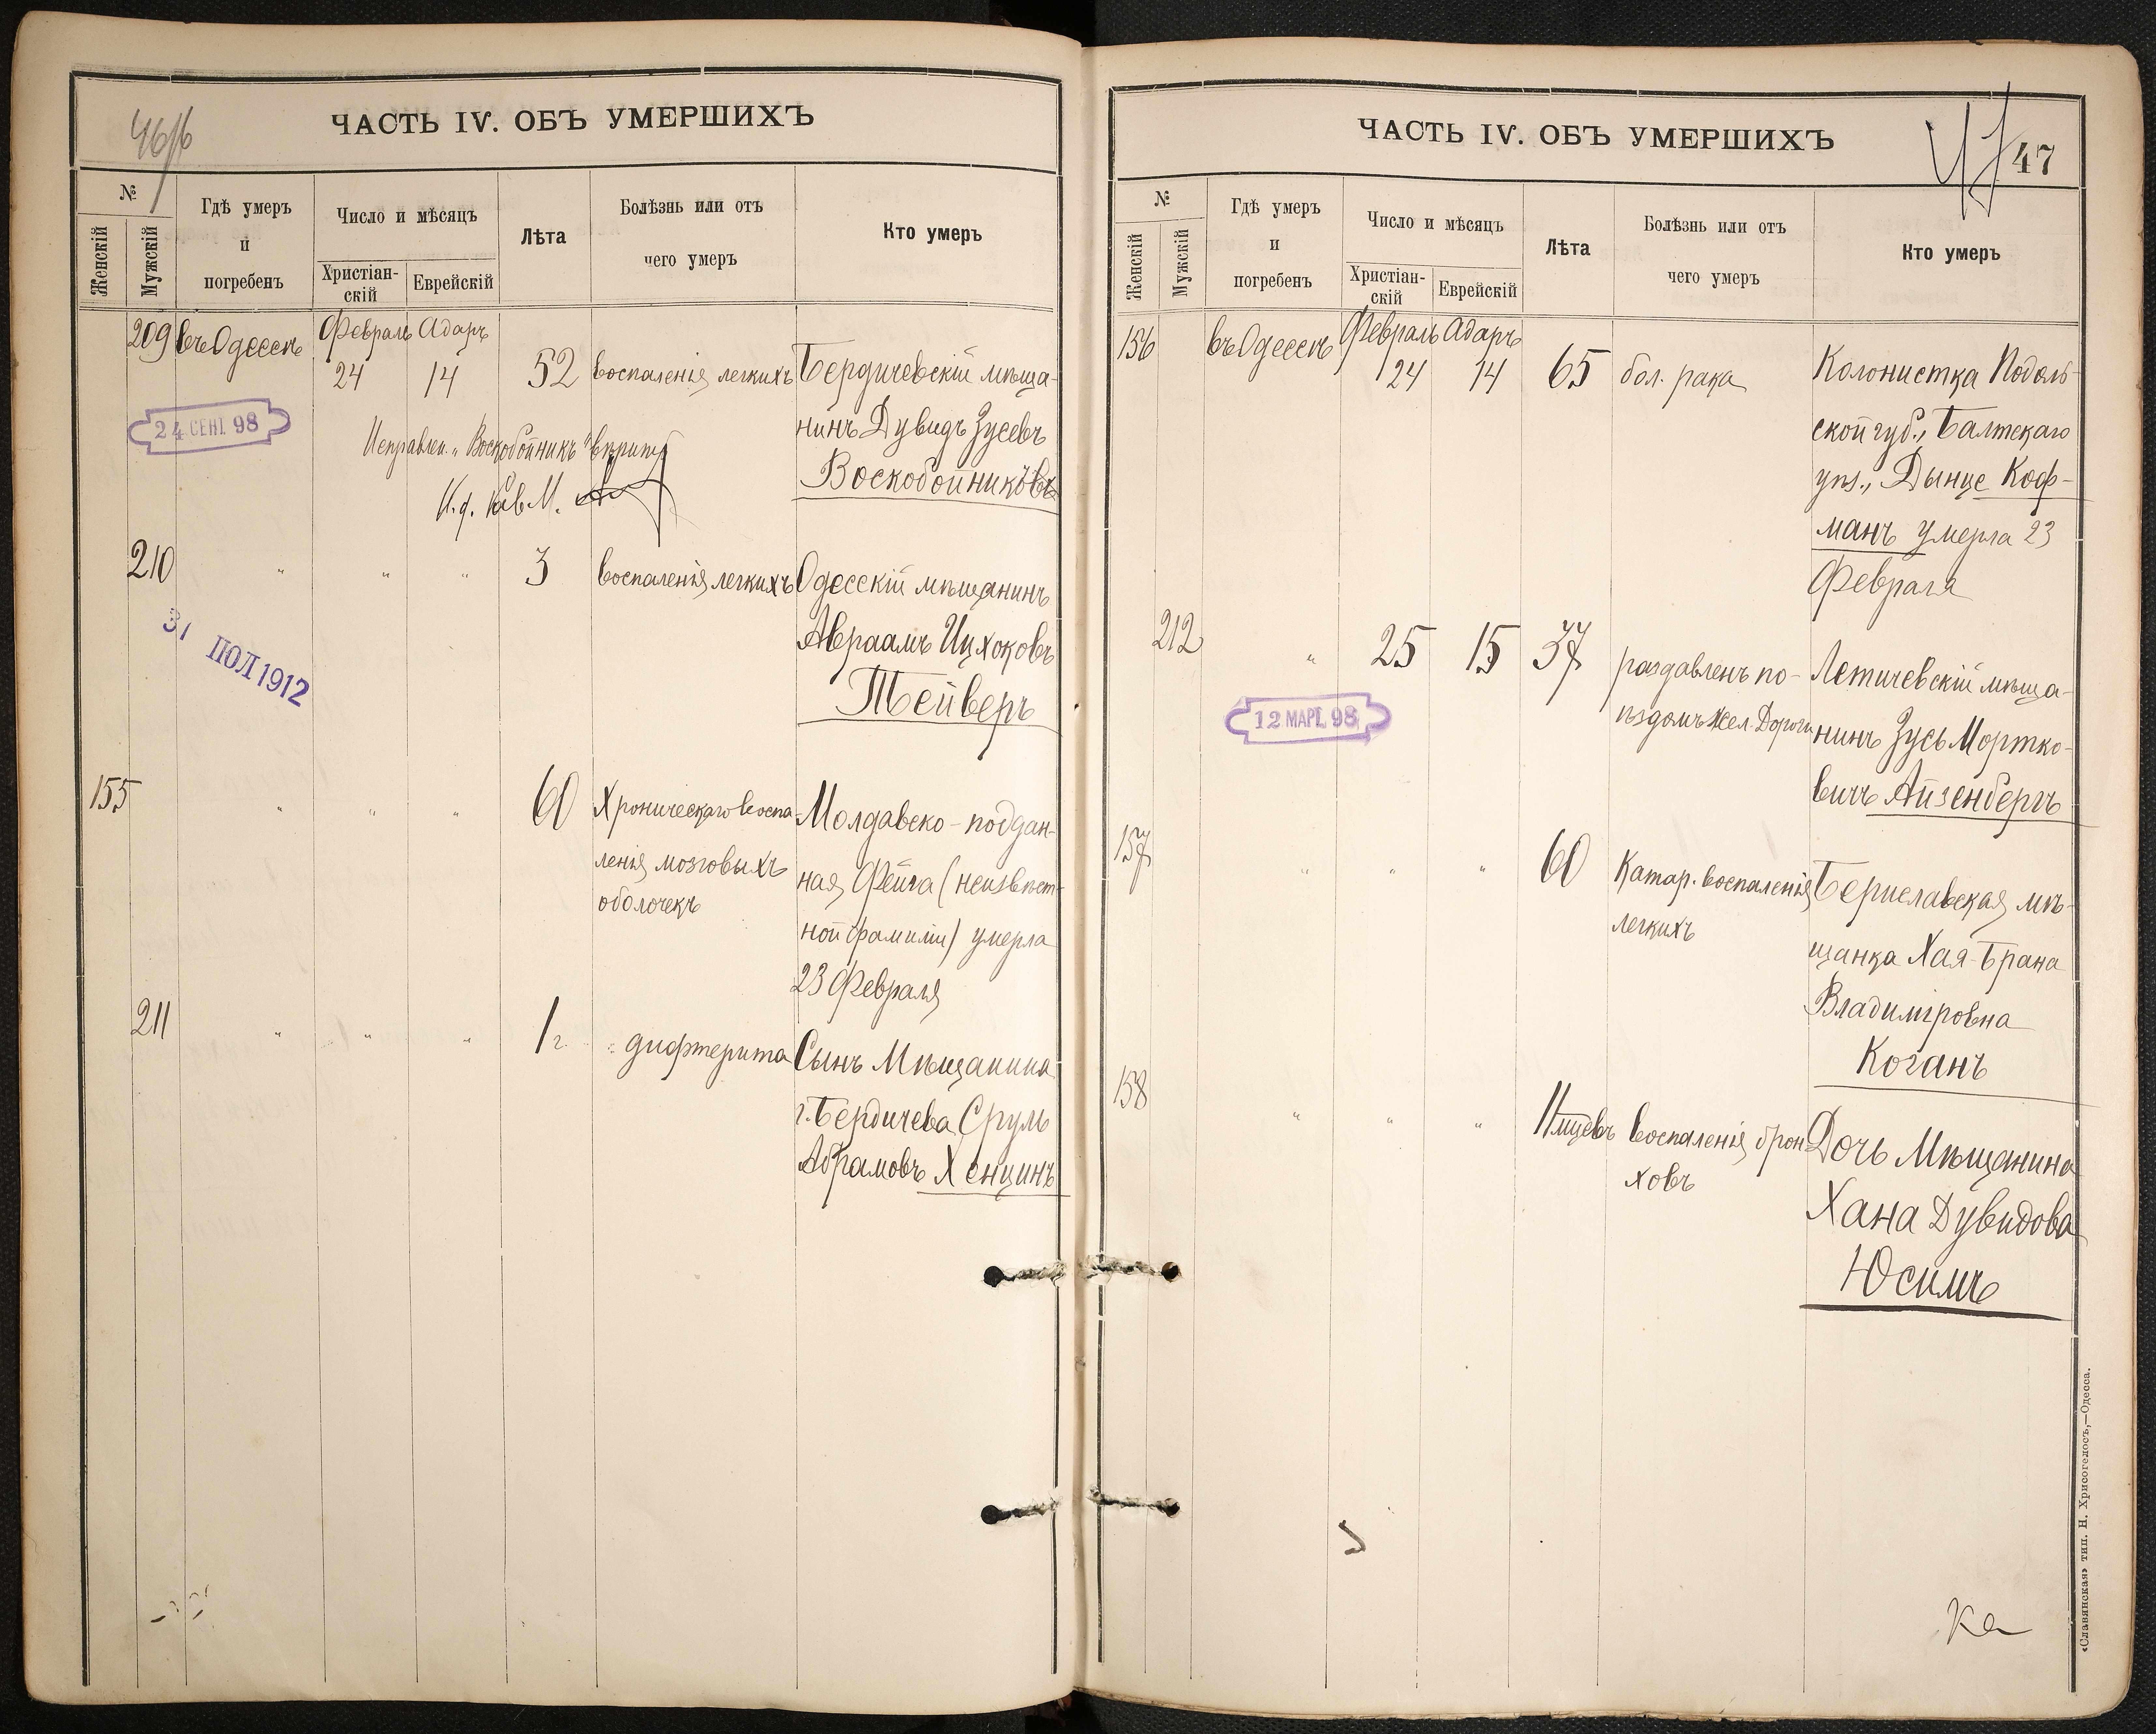 46
ЧАСТЬ IV. ОБЪ УМЕРШИХЪ
№
Женскій
Мужскій
Гдѣ умеръ
и
погребенъ
Число и мѣсяцъ
Христіан-
скій
Еврейскій
Лѣта
Болѣзнь или отъ
чего умеръ
Кто умеръ
209 въ Одессѣ Февраль Адаръ
24 14 52 воспаленія легкихъ Бердичевскій мѣща-
нинъ Дувидъ Зусевъ
Воскобойниковъ
24 СЕНТ. 98
Исправлен. „Воскобойникъ"
И. д.
210 " " " 3 воспаленія легкихъ Одесскій мѣщанинъ
Авраамъ Ицхоковъ
Тейверъ
31 ІЮЛ 1912
155 " " " 60 Хроническаго воспа- Молдавско-поддан-
ленія мозговыхъ ная Фейга (неизвѣст-
оболочекъ ной фамиліи) умерла
23 Февраля
211 " " " 1 г. дифтерита Сынъ Мѣщанина
г. Бердичева Сруль
Абрамовъ Хенцинъ
ЧАСТЬ IV. ОБЪ УМЕРШИХЪ
47
47
№
Женскій
Мужскій
Гдѣ умеръ
и
погребенъ
Число и мѣсяцъ
Христіан-
скій
Еврейскій
Лѣта
Болѣзнь или отъ
чего умеръ
Кто умеръ
156 въ Одессѣ Февраль Адаръ
24 14 65 бол. рака Колонистка Подоль-
ской губ., Балтскаго
уѣз., Дынце Коф-
манъ умерла 23
Февраля
212 " 25 15 37 раздавленъ по- Летичевскій мѣща-
ѣздомъ Жел. Дороги нинъ Зусь Мортко-
вичъ Айзенбергъ
12 МАРТ. 98
157 " " " 60 Катар. воспаленія Бериславская мѣ-
легкихъ щанка Хая-Брана
Владиміровна
Коганъ
158 " " " 11 мцевъ воспаленія брон- Дочь Мѣщанина
ховъ Хана Дувидова
Юсимъ
«Славянская» тип. Н. Хрисогелосъ,—Одесса.